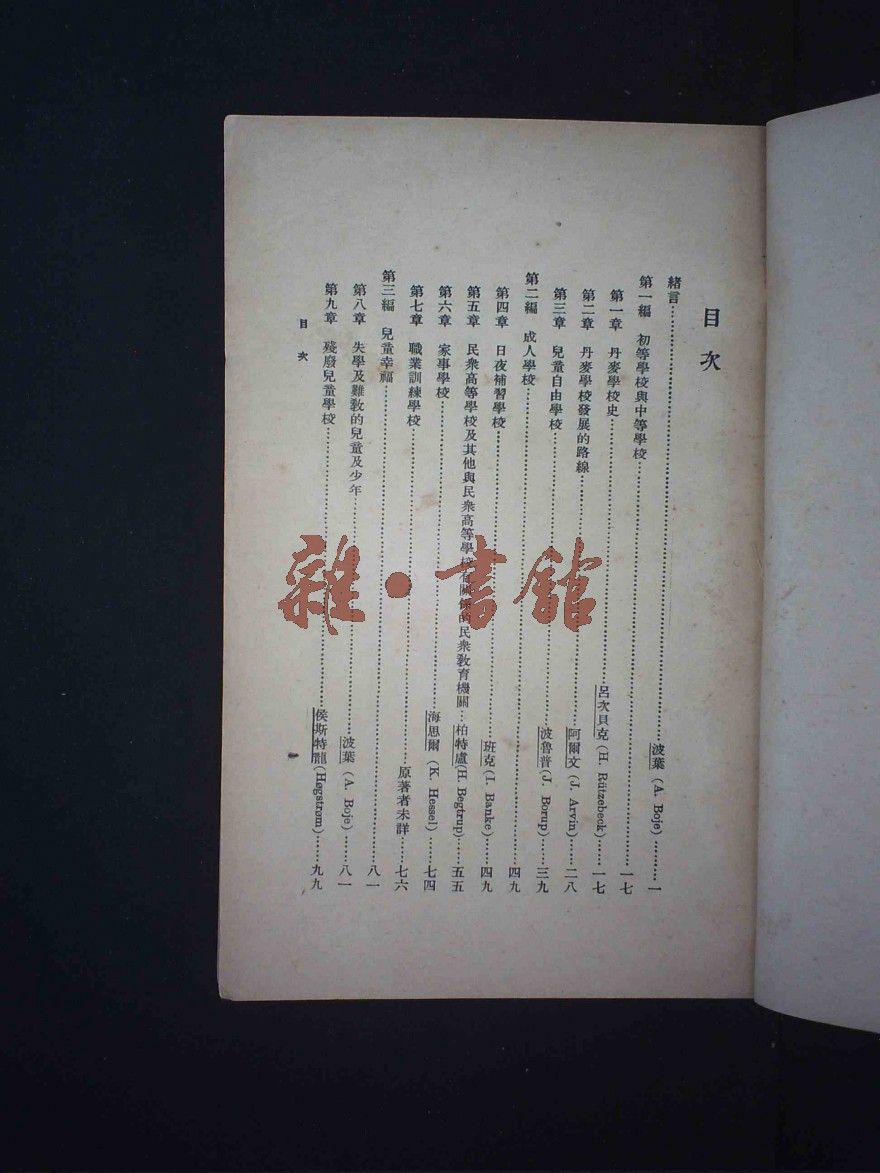 目次
緒言……………波葉 (A. Boje) ………一
第一編 初等學校與中等學校……………一七
第一章 丹麥學校史……………呂次貝克 (H. Rützebeck)……一七
第二章 丹麥學校發展的路線……………阿爾文 (J. Arvin)……二八
第三章 兒童自由學校……………波魯普 (J. Borup)……三九
第二編 成人學校……………四九
第四章 日夜補習學校……………班克 (I. Banke)……四九
第五章 民衆高等學校及其他與民衆高等學校有關係的民衆教育機關…柏特盧 (H. Begtrup)……五五
第六章 家事學校……………海思爾 (K. Hessel)……七四
第七章 職業訓練學校……………原著者未詳……七六
第三編 兒童幸福……………八一
第八章 失學及難教的兒童及少年……………波葉 (A. Boje)……八一
第九章 殘廢兒童學校……………侯斯特龍 (Høgstrøm)……九九
目次
一
雜·書館